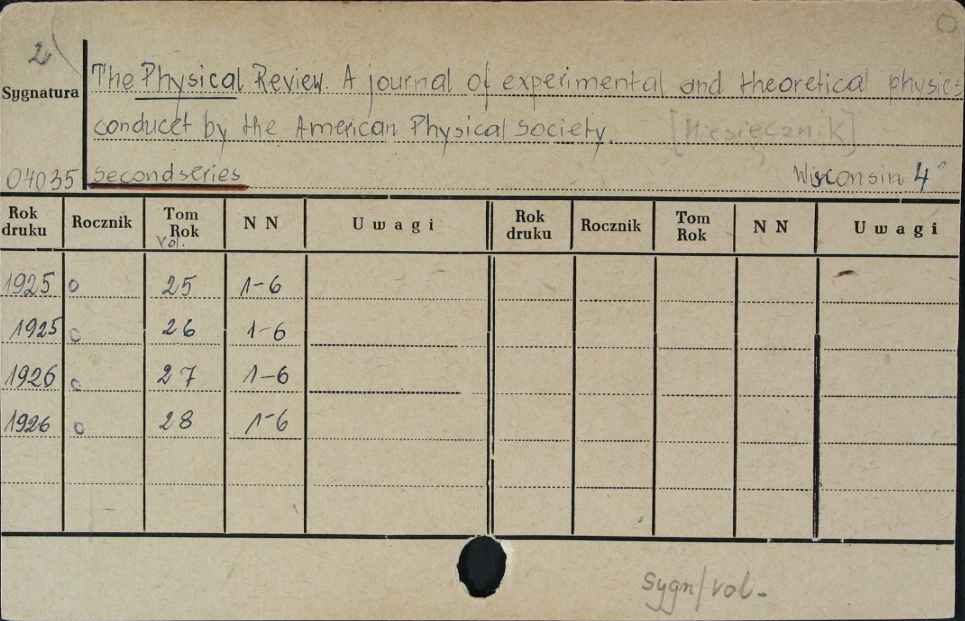 2
Sygnatura
The Physical Review. A journal of experimental and theoretical physics
conducet by the American Physical Society. [Miesięcznik]
04035 second series Wisconsin 4°
Rok druku Rocznik Tom Rok vol. N N Uwagi Rok druku Rocznik Tom Rok N N Uwagi
1925 o 25 1-6
1925 o 26 1-6
1926 o 27 1-6
1926 o 28 1-6
sygn/vol.